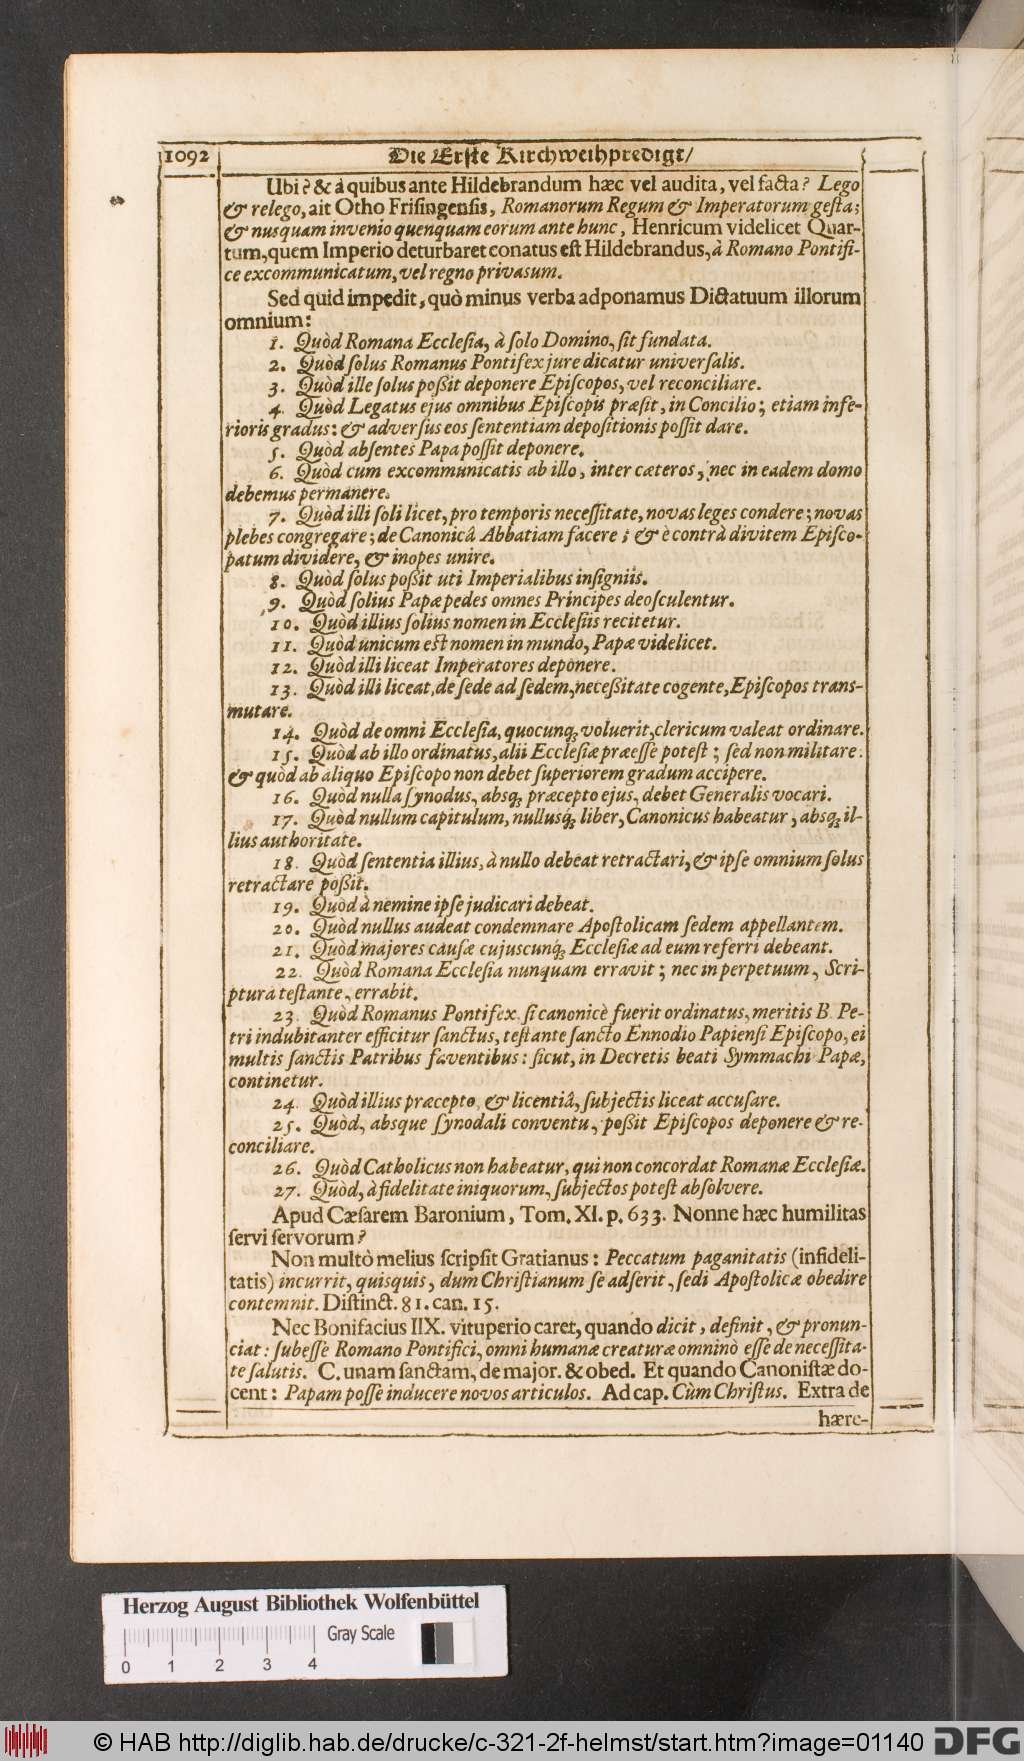 1092
Die Erste Kirchweihpredigt/
Ubi? & à quibus ante Hildebrandum hæc vel audita, vel facta? Lego
& relego, ait Otho Frisingensis, Romanorum Regum & Imperatorum gesta;
& nusquam invenio quenquam eorum ante hunc, Henricum videlicet Quar-
tum, quem Imperio deturbare conatus est Hildebrandus, à Romano Pontifi-
ce excommunicatum, vel regno privasum.
Sed quid impedit, quò minus verba adponamus Dictatuum illorum
omnium:
1. Quòd Romana Ecclesia, à solo Domino, sit fundata.
2. Quòd solus Romanus Pontifex jure dicatur universalis.
3. Quòd ille solus poßit deponere Episcopos, vel reconciliare.
4. Quòd Legatus ejus omnibus Episcopis præsit, in Concilio; etiam infe-
rioris gradus: & adversus eos sententiam depositionis possit dare.
5. Quòd absentes Papa possit deponere.
6. Quòd cum excommunicatis ab illo, inter cæteros, nec in eadem domo
debemus permanere.
7. Quòd illi soli licet, pro temporis necessitate, novas leges condere; novas
plebes congregare; de Canonicâ Abbatiam facere; & è contrà divitem Episco-
patum dividere, & inopes unire.
8. Quòd solus poßit uti Imperialibus insigniis.
9. Quòd solius Papæ pedes omnes Principes deosculentur.
10. Quòd illius solius nomen in Ecclesiis recitetur.
11. Quòd unicum est nomen in mundo, Papæ videlicet.
12. Quòd illi liceat Imperatores deponere.
13. Quòd illi liceat, de sede ad sedem, neceßitate cogente, Episcopos trans-
mutare.
14. Quòd de omni Ecclesia, quocunq; voluerit, clericum valeat ordinare.
15. Quòd ab illo ordinatus, alii Ecclesiæ præesse potest; sed non militare:
& quòd ab aliquo Episcopo non debet superiorem gradum accipere.
16. Quòd nulla synodus, absq; præcepto ejus, debet Generalis vocari.
17. Quòd nullum capitulum, nullusq; liber, Canonicus habeatur, absq; il-
lius authoritate.
18. Quòd sententia illius, à nullo debeat retractari, & ipse omnium solus
retractare poßit.
19. Quòd à nemine ipse judicari debeat.
20. Quòd nullus audeat condemnare Apostolicam sedem appellantem.
21. Quòd majores causæ cujuscunq; Ecclesiæ ad eum referri debeant.
22. Quòd Romana Ecclesia nunquam erravit; nec in perpetuum, Scri-
ptura testante, errabit.
23. Quòd Romanus Pontifex, si canonicè fuerit ordinatus, meritis B. Pe-
tri indubitanter efficitur sanctus, testante sancto Ennodio Papiensi Episcopo, ei
multis sanctis Patribus faventibus: sicut, in Decretis beati Symmachi Papæ,
continetur.
24. Quòd illius præcepto, & licentiâ, subjectis liceat accusare.
25. Quòd, absque synodali conventu, poßit Episcopos deponere & re-
conciliare.
26. Quòd Catholicus non habeatur, qui non concordat Romanæ Ecclesiæ.
27. Quòd, à fidelitate iniquorum, subjectos potest absolvere.
Apud Cæsarem Baronium, Tom. XI. p. 633. Nonne hæc humilitas
servi servorum?
Non multò melius scripsit Gratianus: Peccatum paganitatis (infideli-
tatis) incurrit, quisquis, dum Christianum se adserit, sedi Apostolicæ obedire
contemnit. Distinct. 81. can. 15.
Nec Bonifacius IIX. vituperio caret, quando dicit, definit, & pronun-
ciat: subesse Romano Pontifici, omni humanæ creaturæ omninò esse de necessita-
te salutis. C. unam sanctam, de major. & obed. Et quando Canonistæ do-
cent: Papam posse inducere novos articulos. Ad cap. Cùm Christus. Extra de
hære-
Herzog August Bibliothek Wolfenbüttel
Gray Scale
0 1 2 3 4
© HAB http://diglib.hab.de/drucke/c-321-2f-helmst/start.htm?image=01140
DFG